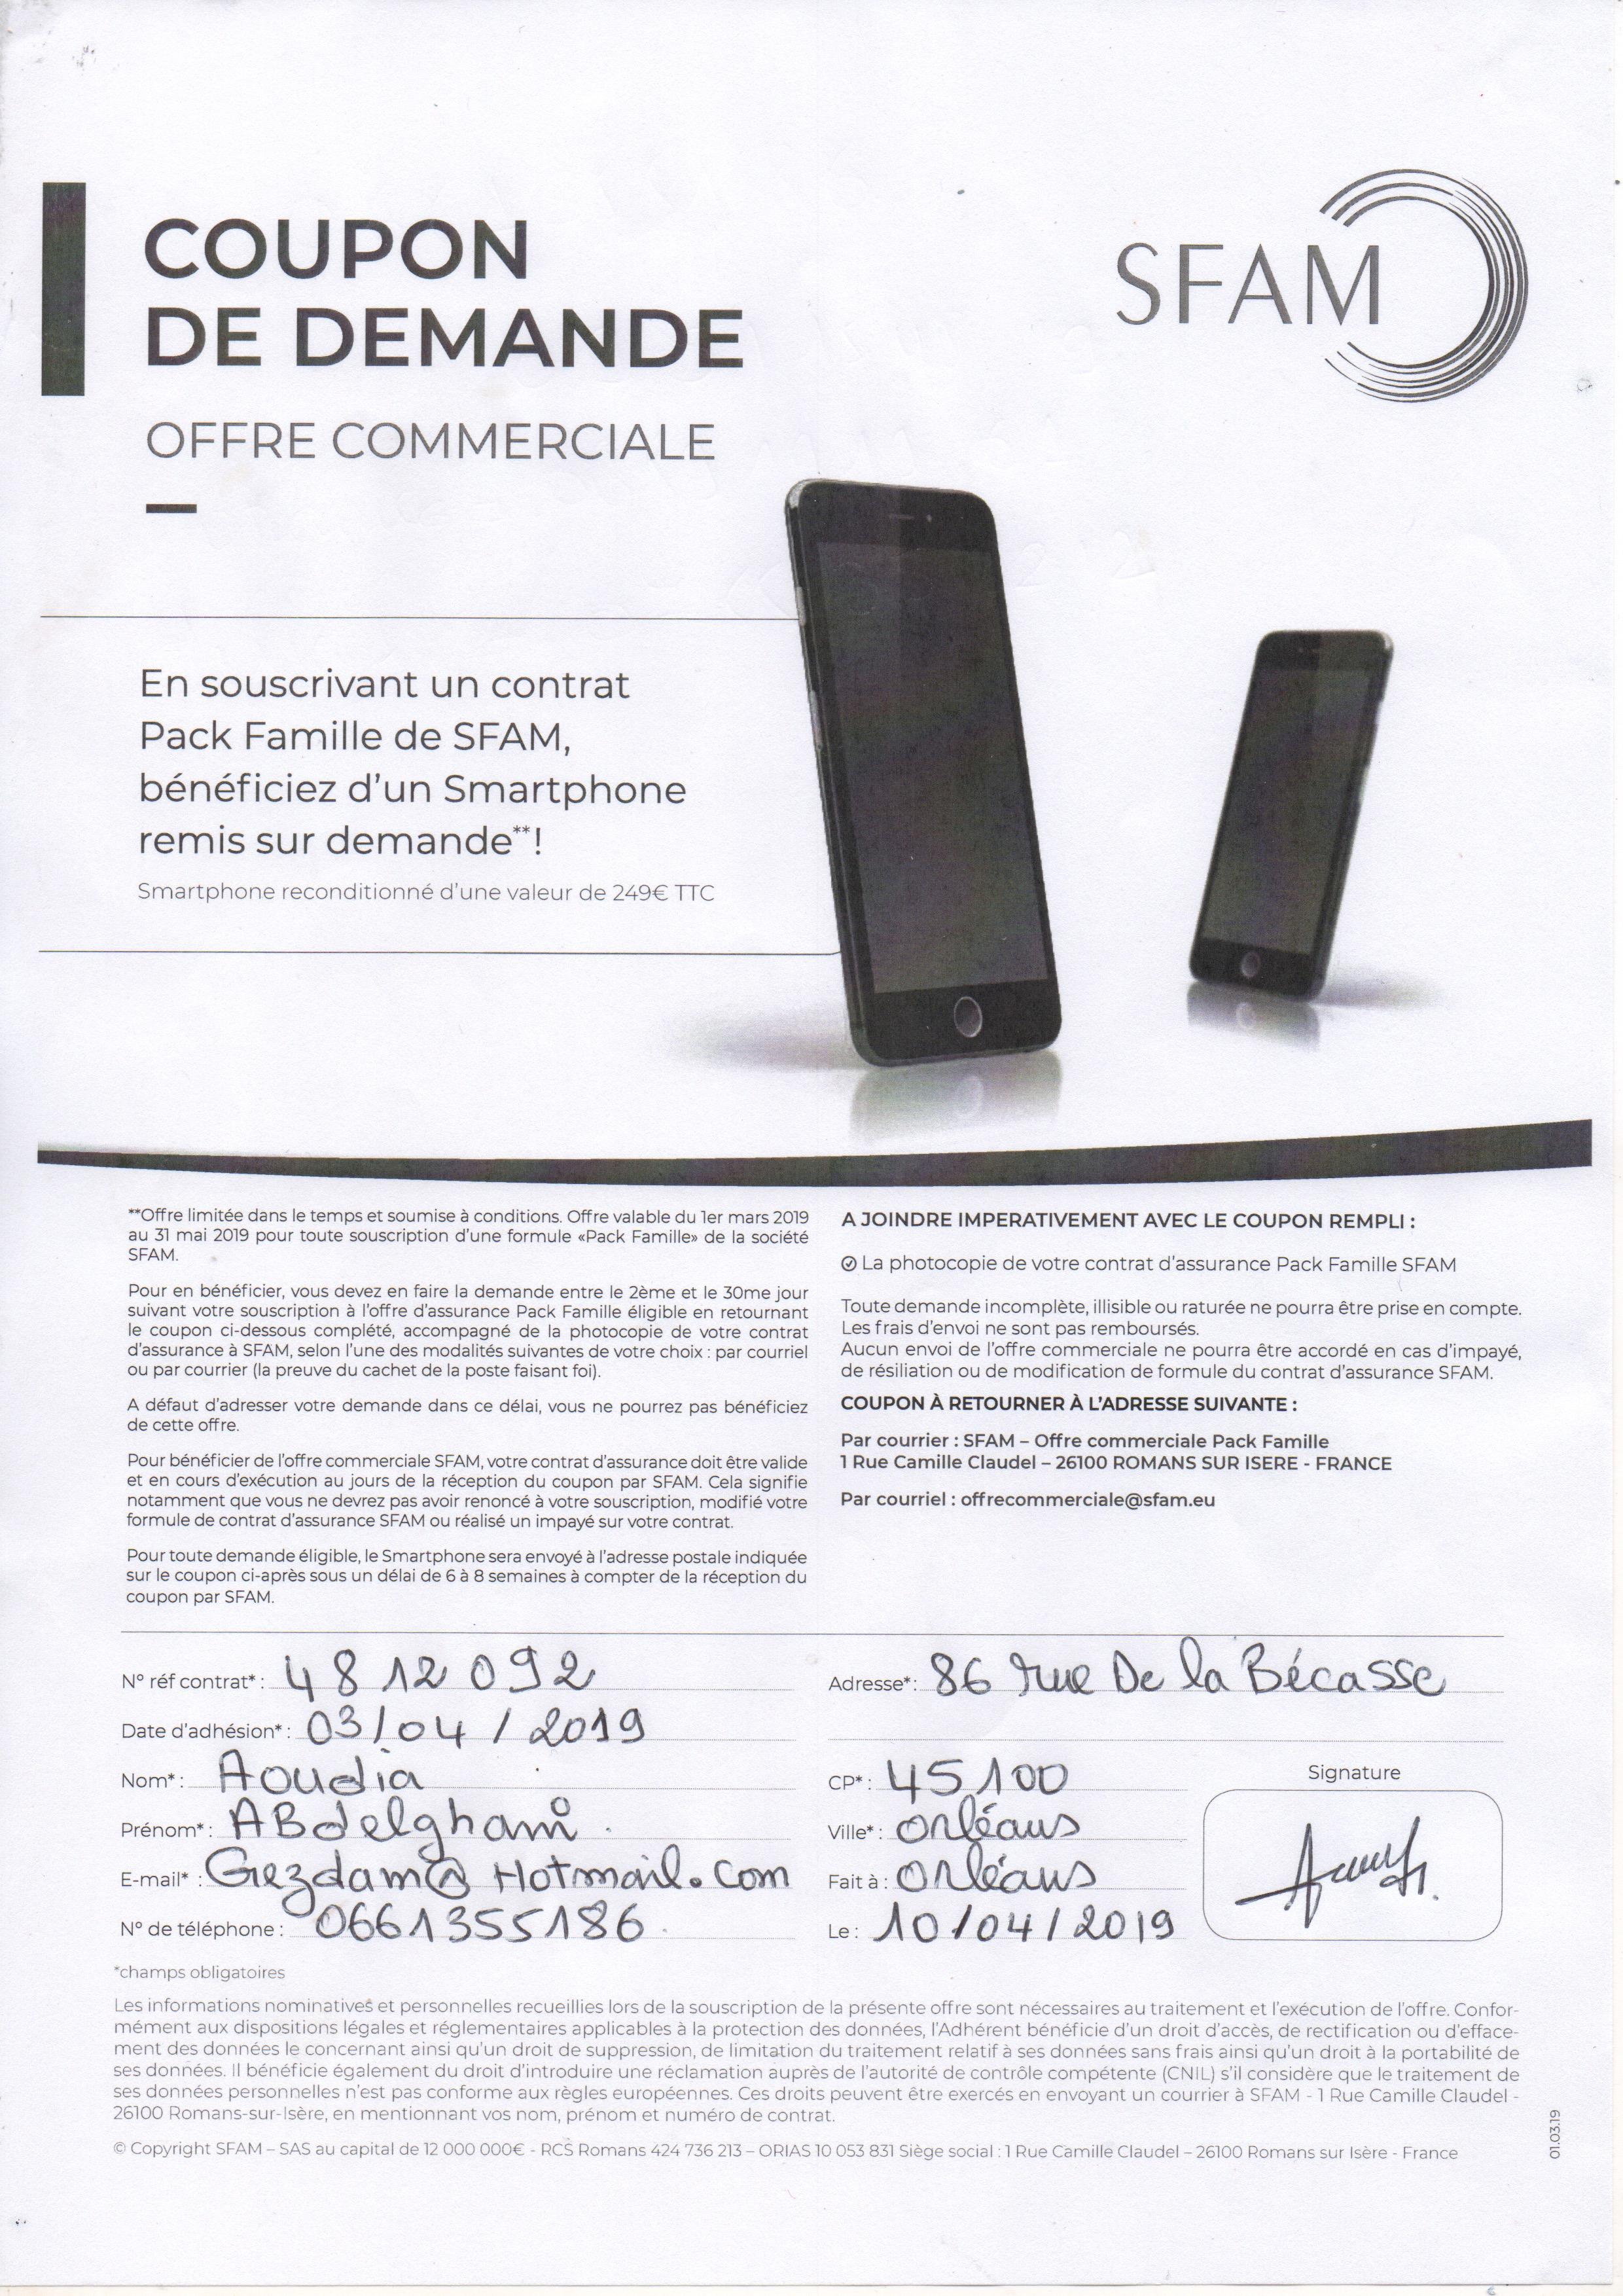 COUPON
DE DEMANDE
SFAM
OFFRE COMMERCIALE
En souscrivant un contrat
Pack Famille de SFAM,
bénéficiez d'un Smartphone
remis sur demande**!
Smartphone reconditionné d'une valeur de 249€ TTC
**Offre limitée dans le temps et soumise à conditions. Offre valable du 1er mars 2019
au 31 mai 2019 pour toute souscription d'une formule «Pack Famille» de la société
SFAM.
Pour en bénéficier, vous devez en faire la demande entre le 2ème et le 30me jour
suivant votre souscription à l'offre d'assurance Pack Famille éligible en retournant
le coupon ci-dessous complété, accompagné de la photocopie de votre contrat
d'assurance à SFAM, selon l'une des modalités suivantes de votre choix : par courriel
ou par courrier (la preuve du cachet de la poste faisant foi).
A défaut d'adresser votre demande dans ce délai, vous ne pourrez pas bénéficiez
de cette offre.
Pour bénéficier de l'offre commerciale SFAM, votre contrat d'assurance doit être valide
et en cours d'exécution au jours de la réception du coupon par SFAM. Cela signifie
notamment que vous ne devrez pas avoir renoncé à votre souscription, modifié votre
formule de contrat d'assurance SFAM ou réalisé un impayé sur votre contrat.
Pour toute demande éligible, le Smartphone sera envoyé à l'adresse postale indiquée
sur le coupon ci-après sous un délai de 6 à 8 semaines à compter de la réception du
coupon par SFAM.
A JOINDRE IMPERATIVEMENT AVEC LE COUPON REMPLI :
La photocopie de votre contrat d'assurance Pack Famille SFAM
Toute demande incomplète, illisible ou raturée ne pourra être prise en compte.
Les frais d'envoi ne sont pas remboursés.
Aucun envoi de l'offre commerciale ne pourra être accordé en cas d'impayé,
de résiliation ou de modification de formule du contrat d'assurance SFAM.
COUPON À RETOURNER À L'ADRESSE SUIVANTE :
Par courrier : SFAM – Offre commerciale Pack Famille
1 Rue Camille Claudel – 26100 ROMANS SUR ISERE - FRANCE
Par courriel : offrecommerciale@sfam.eu
N° réf contrat* : 48 12 092
Date d'adhésion* : 03/04/2019
Nom* : Aoudia
Prénom* : ABdelghani
E-mail* : Gezdam@Hotmail.com
N° de téléphone : 0661355186
Adresse* : 86 rue De la Bécasse
CP* : 45100
Ville* : Orléans
Fait à : Orléans
Le : 10/04/2019
Signature
*champs obligatoires
Les informations nominatives et personnelles recueillies lors de la souscription de la présente offre sont nécessaires au traitement et l'exécution de l'offre. Confor-
mément aux dispositions légales et réglementaires applicables à la protection des données, l'Adhérent bénéficie d'un droit d'accès, de rectification ou d'efface-
ment des données le concernant ainsi qu'un droit de suppression, de limitation du traitement relatif à ses données sans frais ainsi qu'un droit à la portabilité de
ses données. Il bénéficie également du droit d'introduire une réclamation auprès de l'autorité de contrôle compétente (CNIL) s'il considère que le traitement de
ses données personnelles n'est pas conforme aux règles européennes. Ces droits peuvent être exercés en envoyant un courrier à SFAM - 1 Rue Camille Claudel -
26100 Romans-sur-Isère, en mentionnant vos nom, prénom et numéro de contrat.
© Copyright SFAM – SAS au capital de 12 000 000€ - RCS Romans 424 736 213 – ORIAS 10 053 831 Siège social : 1 Rue Camille Claudel – 26100 Romans sur Isère - France
01.03.19